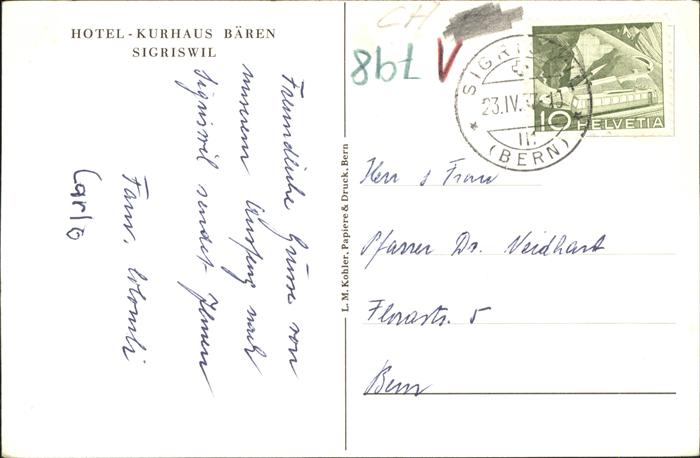 HOTEL-KURHAUS BÄREN
SIGRISWIL
Freundliche Grüsse von
unserem Ausflug nach
Sigriswil sendet Ihnen
Fam.
Carlo
L. M. Kohler, Papiere & Druck, Bern
CH
8b1V
SIGRISWIL
23.IV.
(BERN)
10 HELVETIA
Herr & Frau
Pfarrer Dr. Neidhart
Florastr. 5
Bern